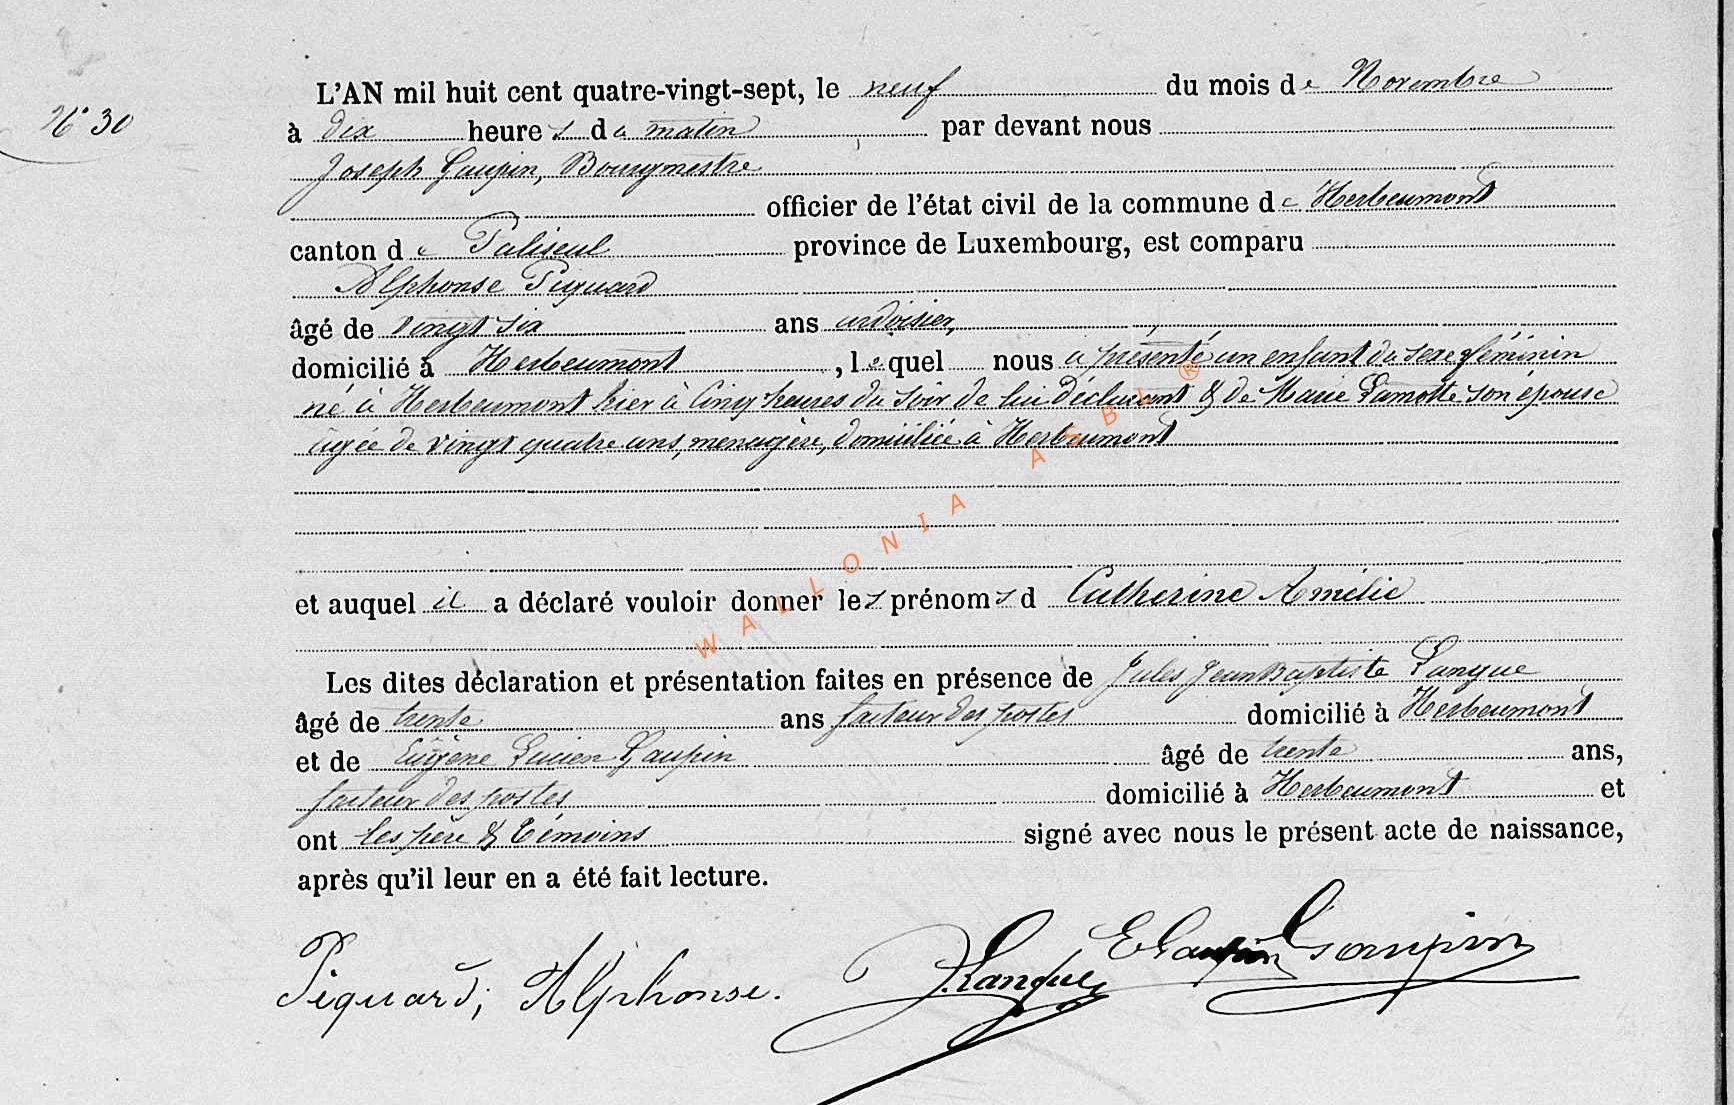 N° 30
L'AN mil huit cent quatre-vingt-sept, le neuf du mois de Novembre
à dix heures du matin par devant nous
Joseph Gaupin, Bourgmestre
officier de l'état civil de la commune de Herbeumont
canton de Paliseul province de Luxembourg, est comparu
Alphonse Piquard
âgé de vingt six ans ardoisier,
domicilié à Herbeumont, lequel nous a présenté un enfant du sexe féminin
né à Herbeumont hier à cinq heures du soir de lui déclarant & de Marie Lamotte son épouse
âgée de vingt quatre ans, menagère, domiciliée à Herbeumont
et auquel il a déclaré vouloir donner les prénoms d Catherine Amélie
Les dites déclaration et présentation faites en présence de Jules Jean Baptiste Langue
âgé de trente ans facteur des postes domicilié à Herbeumont
et de Eugène Lucien Gaupin âgé de trente ans,
facteur des postes domicilié à Herbeumont et
ont les père & témoins signé avec nous le présent acte de naissance,
après qu'il leur en a été fait lecture.
Piquard, Alphonse. J. Langue E Gaupin Gaupin
WALLONIA ASBL ®